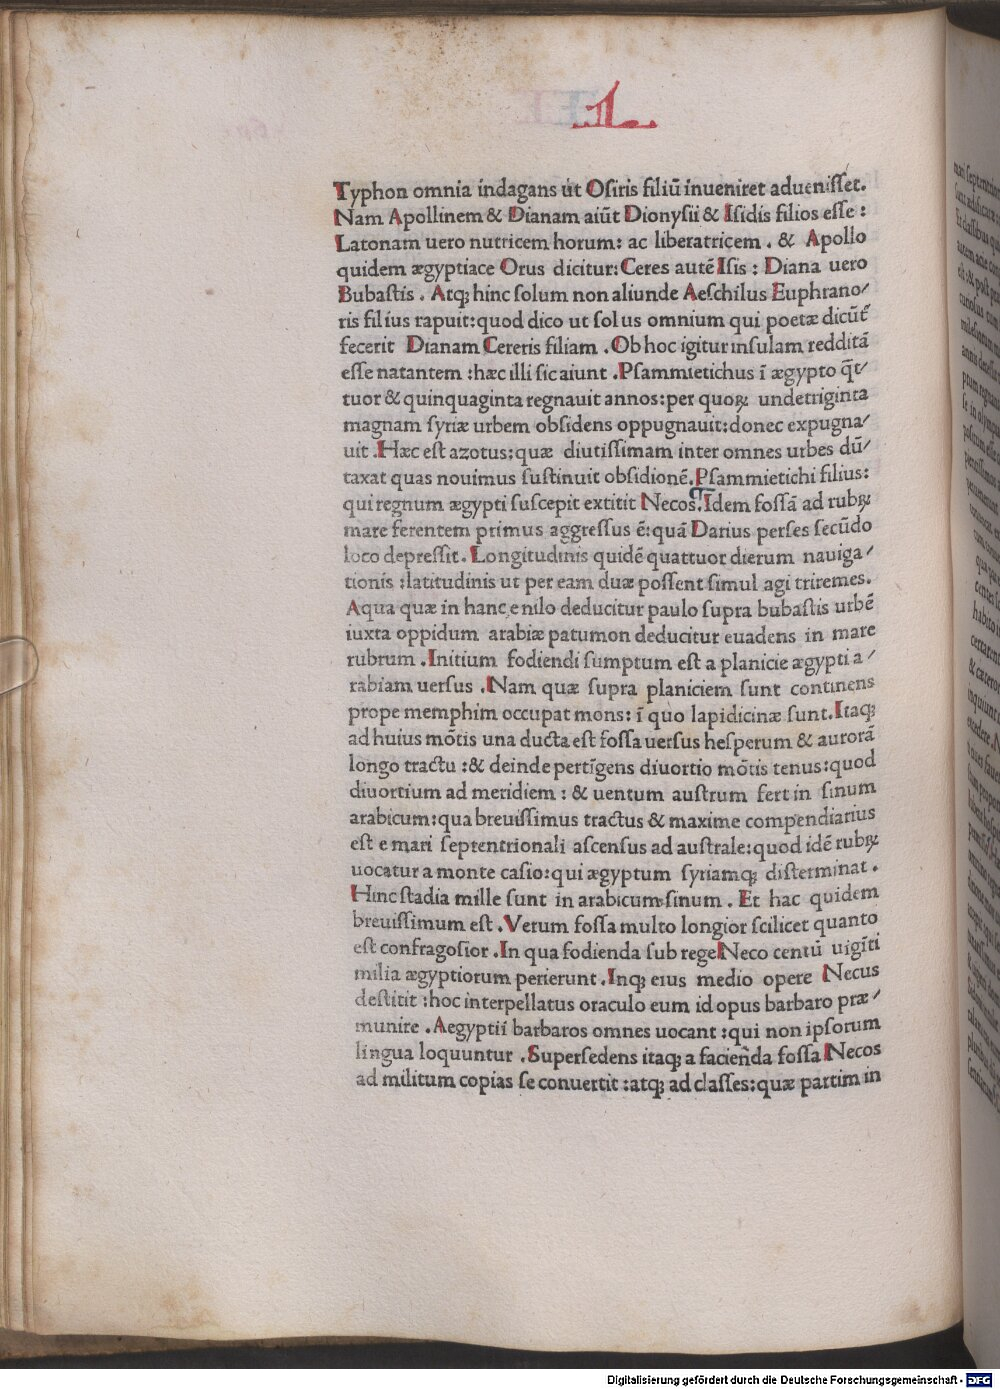 .L.
Typhon omnia indagans ut Osiris filiū inueniret aduenisset.
Nam Apollinem & Dianam aiūt Dionysii & Isidis filios esse :
Latonam uero nutricem horum: ac liberatricem . & Apollo
quidem ægyptiace Orus dicitur: Ceres autē Isis : Diana uero
Bubastis . Atq; hinc solum non aliunde Aeschilus Euphrano/
ris filius rapuit:quod dico ut solus omnium qui poetæ dicūt̄
fecerit Dianam Cereris filiam . Ob hoc igitur insulam redditā
esse natantem :hæc illi sic aiunt . Psammietichus ī ægypto q̄t/
tuor & quinquaginta regnauit annos:per quoꝝ undetriginta
magnam syriæ urbem obsidens oppugnauit:donec expugna/
uit .Hæc est azotus:quæ diutissimam inter omnes urbes dū/
taxat quas nouimus sustinuit obsidionē.Psammietichi filius:
qui regnum ægypti suscepit extitit Necos.Idem fossā ad rubꝝ
mare ferentem primus aggressus ē:quā Darius perses secūdo
loco depressit.Longitudinis quidē quattuor dierum nauiga/
tionis :latitudinis ut per eam duæ possent simul agi triremes.
Aqua quæ in hanc e nilo deducitur paulo supra bubastis urbē
iuxta oppidum arabiæ patumon deducitur euadens in mare
rubrum .Initium fodiendi sumptum est a planicie ægypti a/
rabiam uersus .Nam quæ supra planiciem sunt continens
prope memphim occupat mons: ī quo lapidicinæ sunt.Itaq;
ad huius mōtis una ducta est fossa uersus hesperum & aurorā
longo tractu :& deinde pertīgens diuortio mōtis tenus:quod
diuortium ad meridiem : & uentum austrum fert in sinum
arabicum:qua breuissimus tractus & maxime compendiarius
est e mari septentrionali ascensus ad australe:quod idē rubꝝ
uocatur a monte casio:qui ægyptum syriamq; disterminat .
Hinc stadia mille sunt in arabicum sinum . Et hac quidem
breuissimum est .Verum fossa multo longior scilicet quanto
est confragosior .In qua fodienda sub rege Neco centū uigīti
milia ægyptiorum perierunt .Inq; eius medio opere Necus
destitit :hoc interpellatus oraculo eum id opus barbaro præ/
munire .Aegyptii barbaros omnes uocant :qui non ipsorum
lingua loquuntur .Supersedens itaq; a facienda fossa Necos
ad militum copias se conuertit :atq; ad classes:quæ partim in
Digitalisierung gefördert durch die Deutsche Forschungsgemeinschaft - DFG